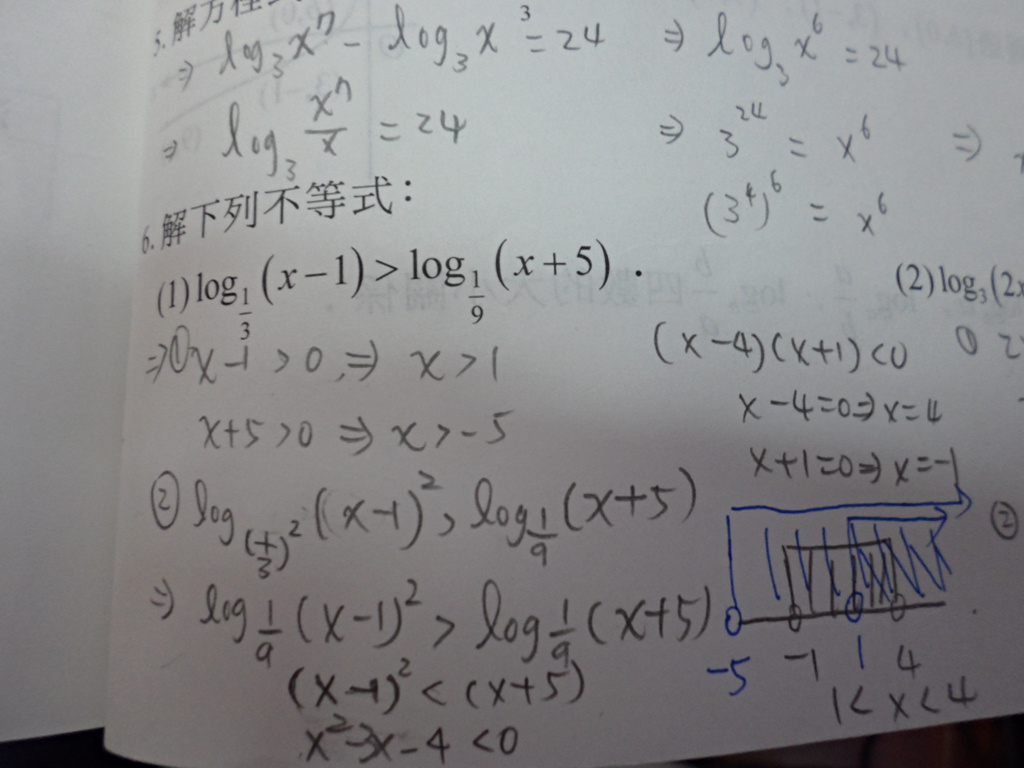 5.解方程
⇒ log₃x⁷ - log₃x³ = 24 ⇒ log₃x⁶ = 24
⇒ log₃ x⁷/x = 24 ⇒ 3²⁴ = x⁶ ⇒
(3⁴)⁶ = x⁶
6.解下列不等式：
(1) log_{1/3}(x−1) > log_{1/9}(x+5)． (2) log₃(2x
⇒① x-1 > 0, ⇒ x > 1
x+5 > 0 ⇒ x > -5
② log_{(1/3)²}(x-1)² > log_{1/9}(x+5)
⇒ log_{1/9}(x-1)² > log_{1/9}(x+5)
(x-1)² < (x+5)
x²-3x-4 < 0
(x-4)(x+1) < 0 ①
x-4=0⇒x=4
x+1=0⇒x=-1
②
-5 -1 1 4
1 < x < 4